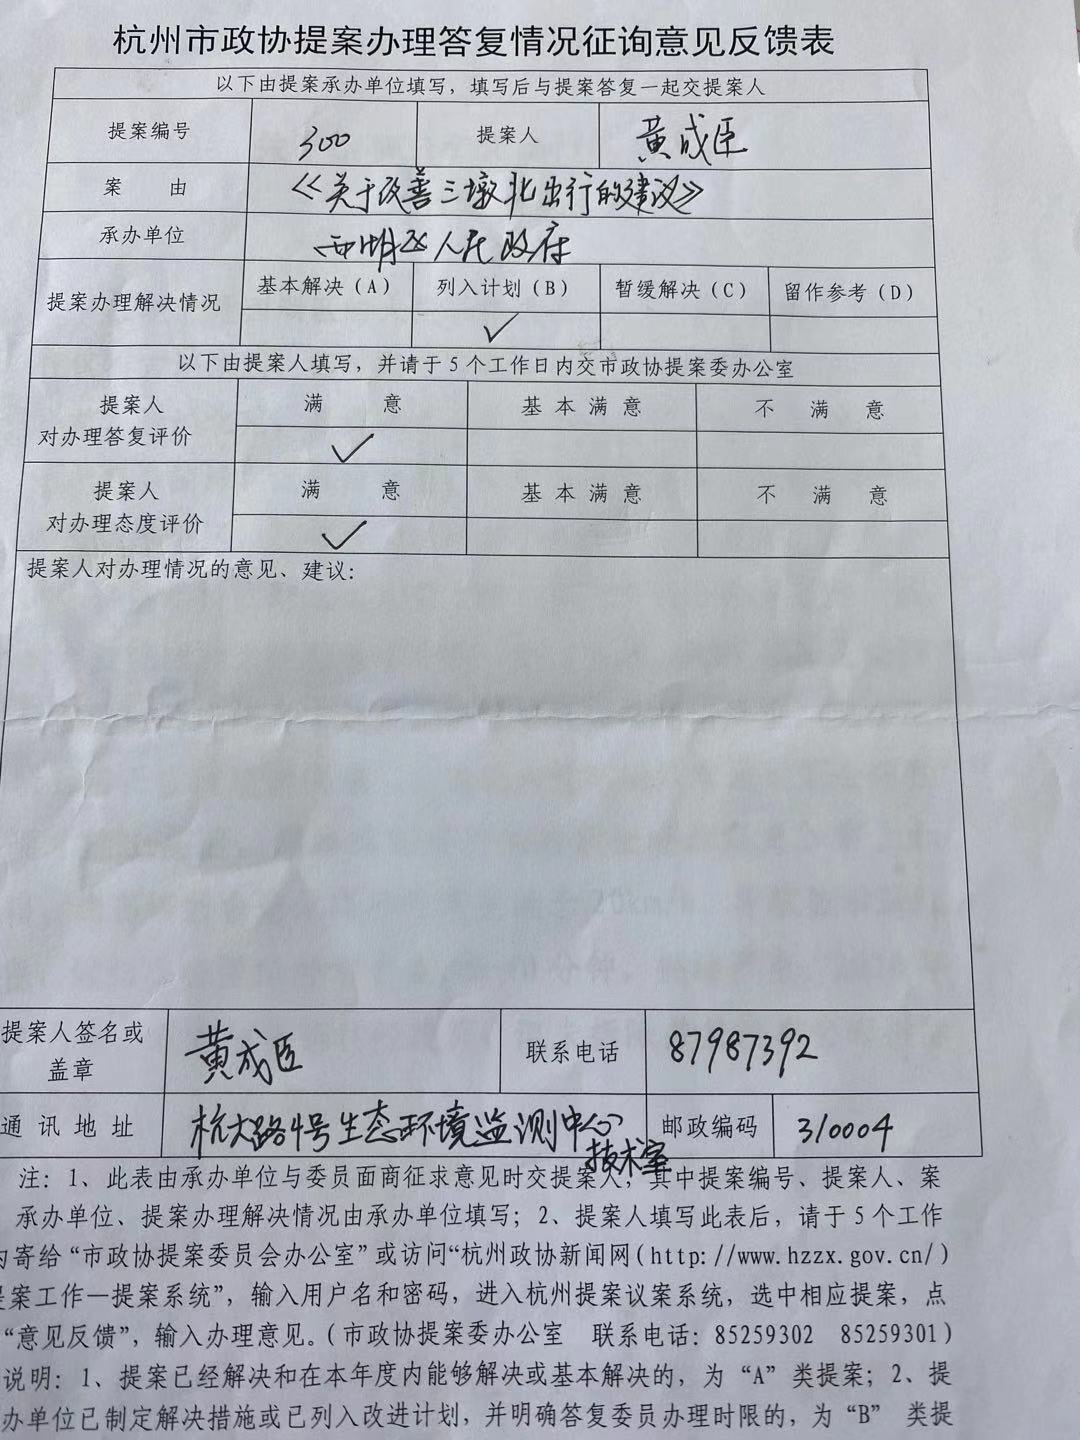 杭州市政协提案办理答复情况征询意见反馈表
以下由提案承办单位填写，填写后与提案答复一起交提案人
提案编号 300 提案人 黄成臣
案 由 《关于改善三墩北出行的建议》
承办单位 西湖区人民政府
提案办理解决情况 基本解决（A） 列入计划（B） 暂缓解决（C） 留作参考（D）
✓
以下由提案人填写，并请于5个工作日内交市政协提案委办公室
提案人
对办理答复评价 满 意 基 本 满 意 不 满 意
✓
提案人
对办理态度评价 满 意 基 本 满 意 不 满 意
✓
提案人对办理情况的意见、建议：
提案人签名或
盖章 黄成臣 联系电话 87987392
通 讯 地 址 杭大路4号生态环境监测中心 邮政编码 310004
技术室
注：1、此表由承办单位与委员面商征求意见时交提案人，其中提案编号、提案人、案
承办单位、提案办理解决情况由承办单位填写；2、提案人填写此表后，请于5个工作
内寄给“市政协提案委员会办公室”或访问“杭州政协新闻网(http://www.hzzx.gov.cn/)
提案工作—提案系统”，输入用户名和密码，进入杭州提案议案系统，选中相应提案，点
“意见反馈”，输入办理意见。（市政协提案委办公室 联系电话：85259302 85259301）
说明：1、提案已经解决和在本年度内能够解决或基本解决的，为“A”类提案；2、提
办单位已制定解决措施或已列入改进计划，并明确答复委员办理时限的，为“B” 类提